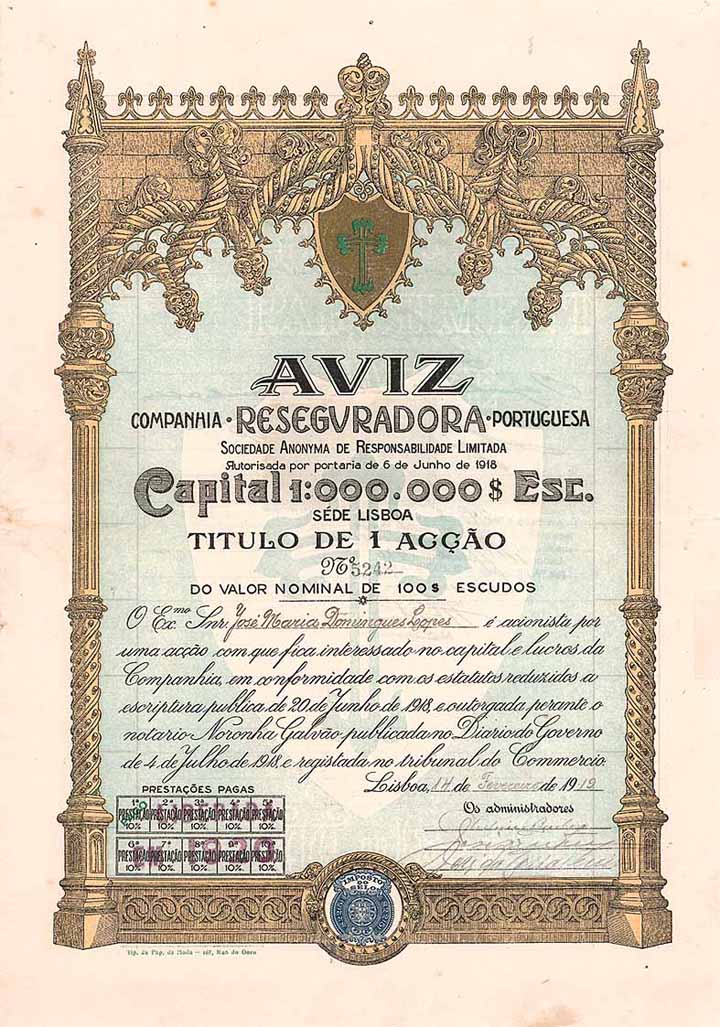 AVIZ
COMPANHIA · RESEGVRADORA · PORTUGUESA
SOCIEDADE ANONYMA DE RESPONSABILIDADE LIMITADA
Autorisada por portaria de 6 de Junho de 1918
Capital 1:000.000$ Esc.
SÉDE LISBOA
TITULO DE 1 ACÇÃO
Nº 5242
DO VALOR NOMINAL DE 100$ ESCUDOS
O Ex.mo Snr. José Maria Domingues Lopes é acionista por
uma acção com que fica interessado no capital e lucros da
Companhia, em conformidade com os estatutos reduzidos a
escriptura publica de 20 de Junho de 1918, e outorgada perante o
notario Noronha Galvão publicada no Diario do Governo
de 4 de Julho de 1918, e registada no tribunal do Commercio.
Lisboa, 14 de Fevereiro de 1919
PRESTAÇÕES PAGAS
1ª 2ª 3ª 4ª 5ª
PRESTAÇÃO PRESTAÇÃO PRESTAÇÃO PRESTAÇÃO PRESTAÇÃO
10% 10% 10% 10% 10%
6ª 7ª 8ª 9ª
PRESTAÇÃO PRESTAÇÃO PRESTAÇÃO PRESTAÇÃO PRESTAÇÃO
10% 10% 10% 10% 10%
Os administradores
IMPOSTO DO SELO
Typ. da Pap. da Moda — 167, Rua do Ouro